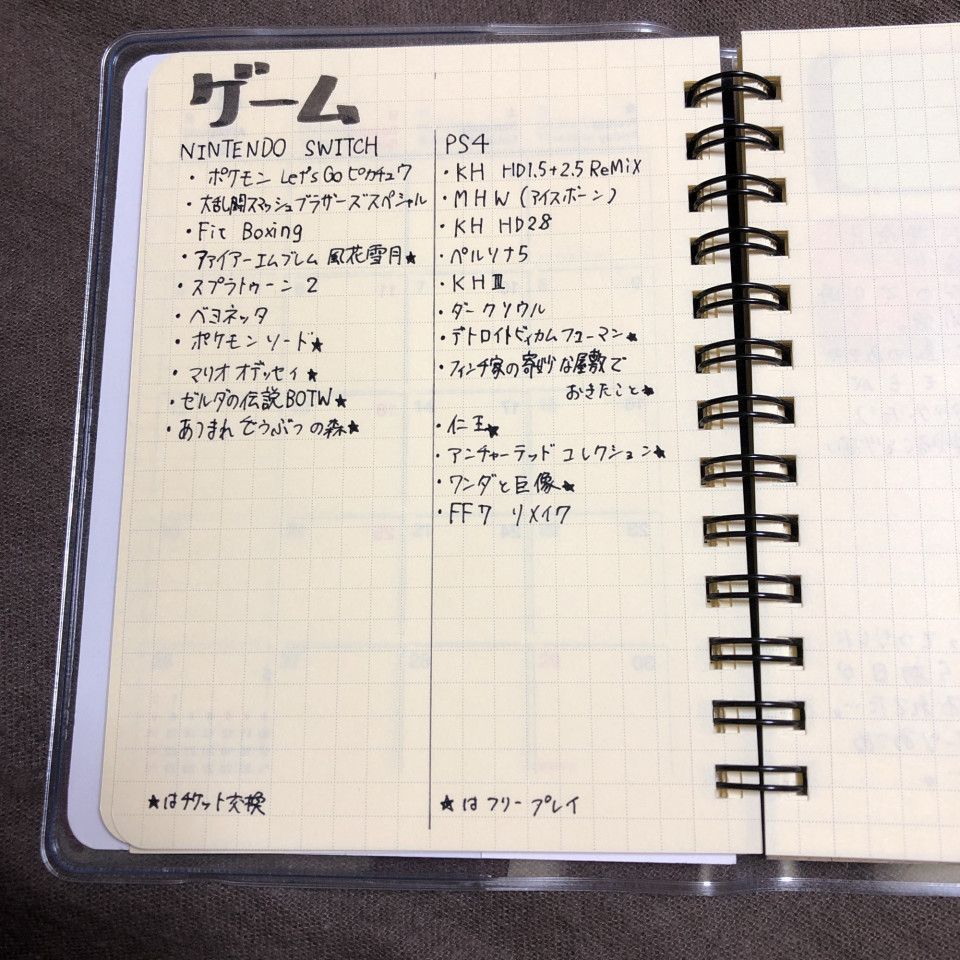 ゲーム
NINTENDO SWITCH
・ポケモン Let's Go ピカチュウ
・大乱闘スマッシュブラザーズスペシャル
・Fit Boxing
・ファイアーエムブレム 風花雪月★
・スプラトゥーン2
・ベヨネッタ
・ポケモン ソード★
・マリオ オデッセイ★
・ゼルダの伝説BOTW★
・あつまれ どうぶつの森★
★はチケット交換
PS4
・KH HD1.5+2.5 ReMiX
・MHW (アイスボーン)
・KH HD2.8
・ペルソナ5
・KHⅢ
・ダークソウル
・デトロイトビィカムフューマン★
・フィンチ家の奇妙な屋敷で
おきたこと★
・仁王★
・アンチャーテッド コレクション★
・ワンダと巨像★
・FF7 リメイク
★はフリープレイ